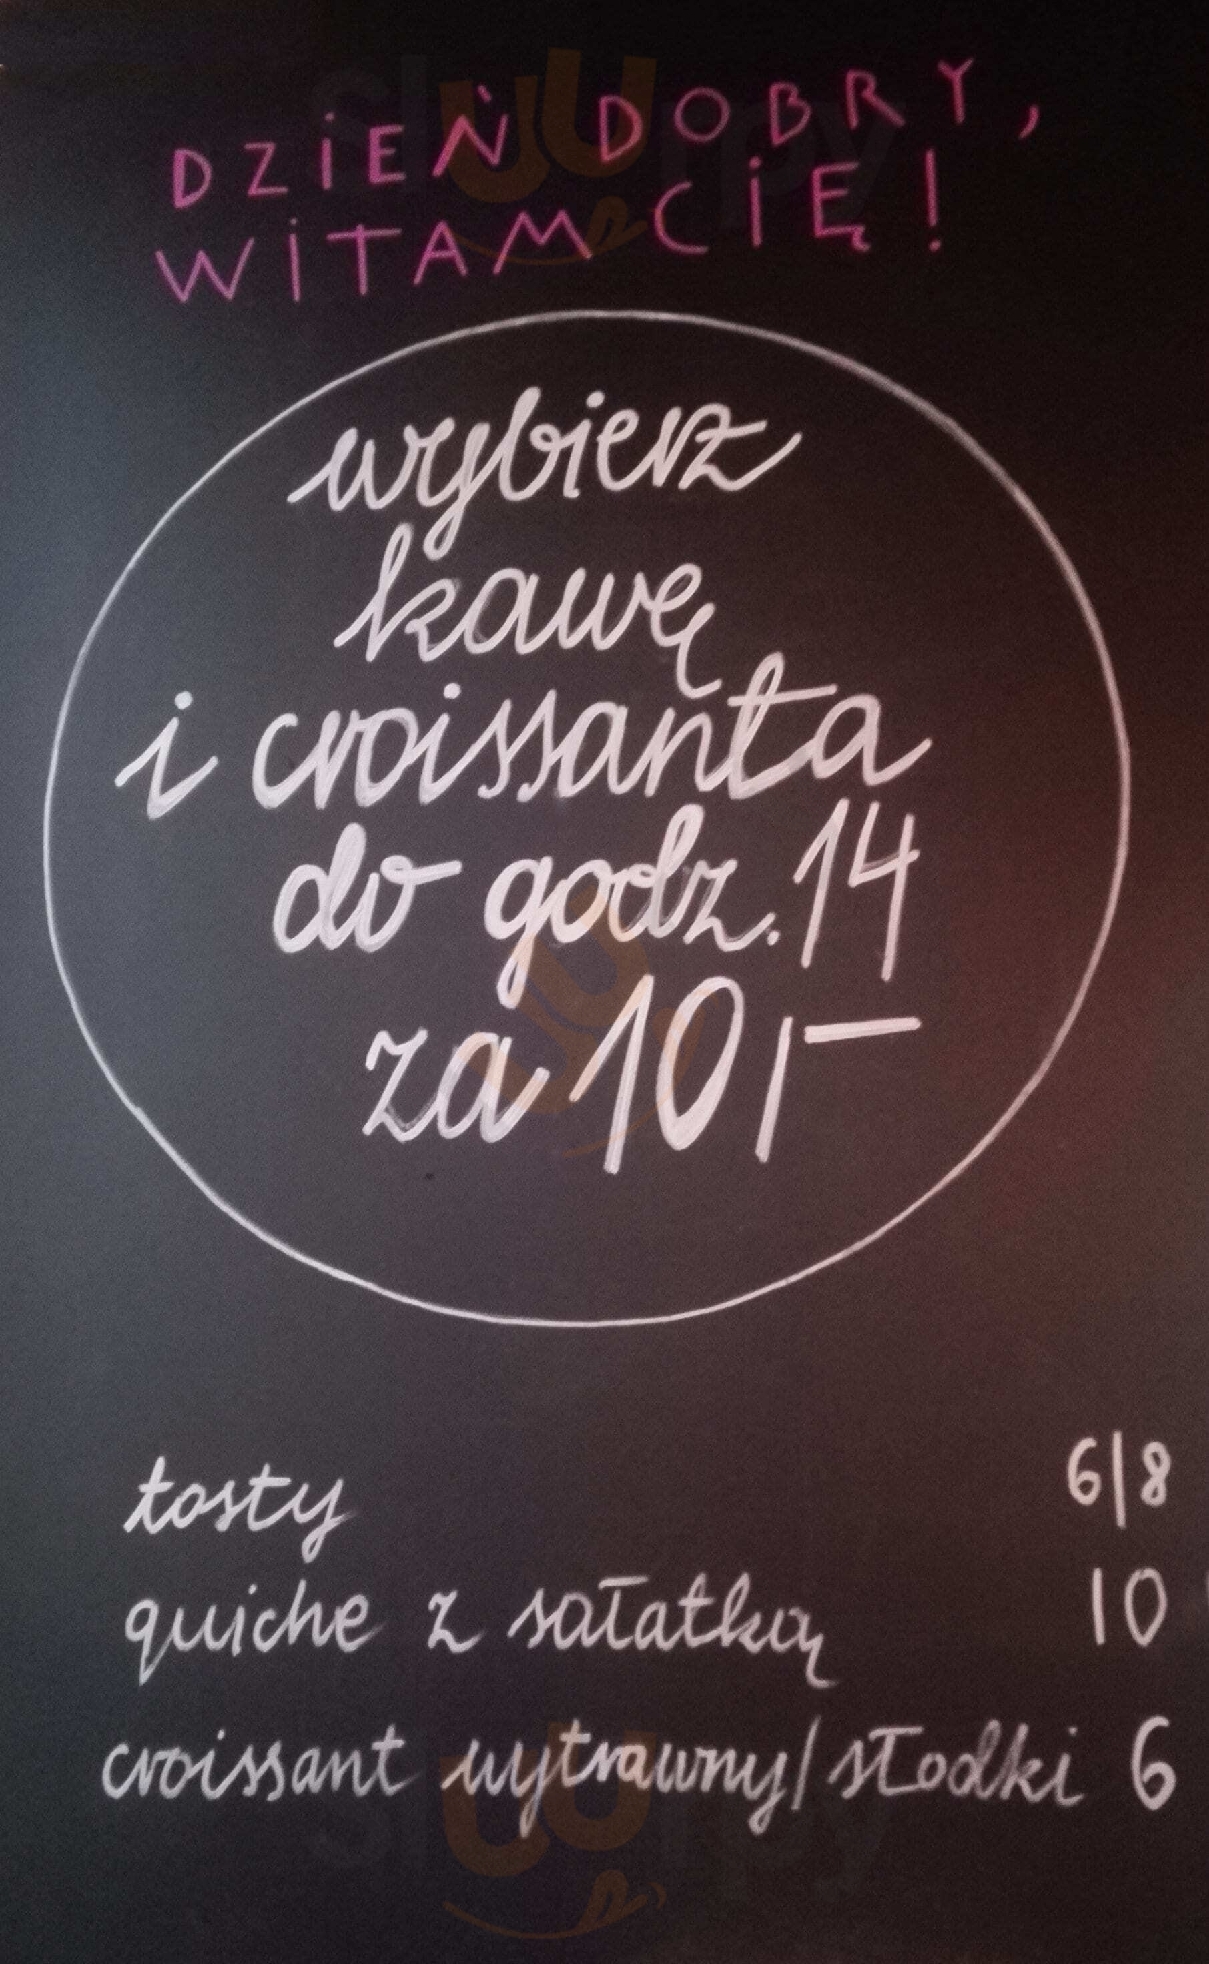 DZIEŃ DOBRY,
WITAM CIĘ!
wybierz
kawę
i croissanta
do godz. 14
za 10,-
tosty 6/8
quiche z sałatką 10
croissant wytrawny/słodki 6
sluurpy
sluurpy